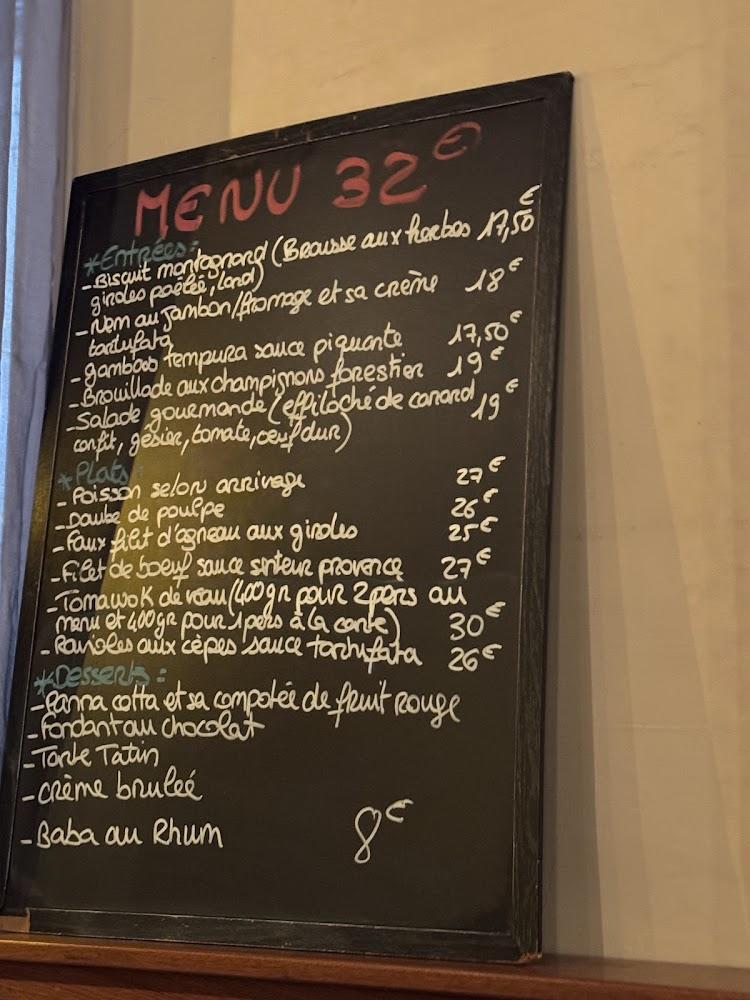 MENU 32€
*Entrées:
-Biscuit montagnard (Brousse aux herbes 17,50€
giroles poêlée, lard)
-Nem au jambon/fromage et sa crème 18€
tartufata
-gambas tempura sauce piquante 17,50€
-Brouillade aux champignons forestier 19€
-Salade gourmande (effiloché de canard 19€
confit, gésier, tomate, oeuf dur)
*Plats:
-Poisson selon arrivage 27€
-Daube de poulpe 26€
-Faux filet d'agneau aux giroles 25€
-Filet de boeuf sauce senteur provence 27€
-Tomawok de veau (400gr pour 2pers au
menu et 400gr pour 1pers à la carte) 30€
-Ravioles aux cèpes sauce tartufata 26€
*Desserts:
-Panna cotta et sa compotée de fruit rouge
-Fondant au chocolat
-Tarte Tatin
-crème bruleé
-Baba au Rhum 8€